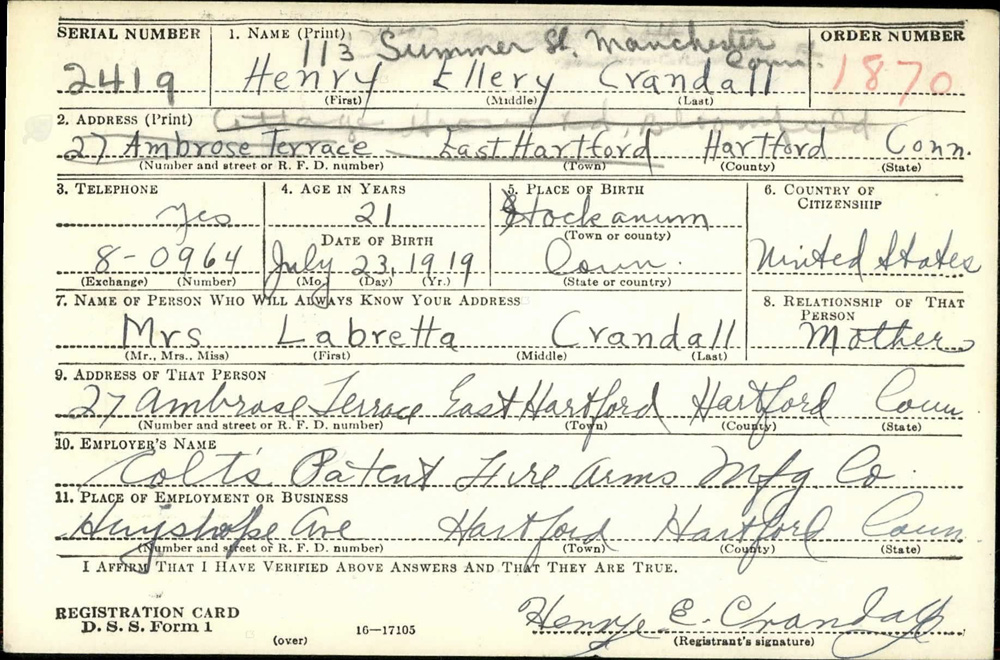 SERIAL NUMBER 1. NAME (Print) ORDER NUMBER
113 Summer St. Manchester
Conn.
2419 Henry Ellery Crandall 1870
(First) (Middle) (Last)
2. ADDRESS (Print) Cottage Grove Rd, Bloomfield
27 Ambrose Terrace East Hartford Hartford Conn.
(Number and street or R. F. D. number) (Town) (County) (State)
3. TELEPHONE 4. AGE IN YEARS 5. PLACE OF BIRTH 6. COUNTRY OF CITIZENSHIP
yes 21 Hockanum
(Town or county)
DATE OF BIRTH
8-0964 July 23, 1919 Conn. United States
(Exchange) (Number) (Mo.) (Day) (Yr.) (State or country)
7. NAME OF PERSON WHO WILL ALWAYS KNOW YOUR ADDRESS 8. RELATIONSHIP OF THAT PERSON
Mrs Labretta Crandall Mother
(Mr., Mrs., Miss) (First) (Middle) (Last)
9. ADDRESS OF THAT PERSON
27 Ambrose Terrace East Hartford Hartford Conn
(Number and street or R. F. D. number) (Town) (County) (State)
10. EMPLOYER'S NAME
Colt's Patent Fire Arms Mfg. Co.
11. PLACE OF EMPLOYMENT OR BUSINESS
Huyshope Ave Hartford Hartford Conn.
(Number and street or R. F. D. number) (Town) (County) (State)
I AFFIRM THAT I HAVE VERIFIED ABOVE ANSWERS AND THAT THEY ARE TRUE.
REGISTRATION CARD
D. S. S. Form 1 Henry E. Crandall
(over) 16—17105 (Registrant's signature)